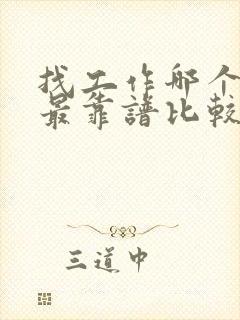 找工作哪个
最靠譜比較
三道中